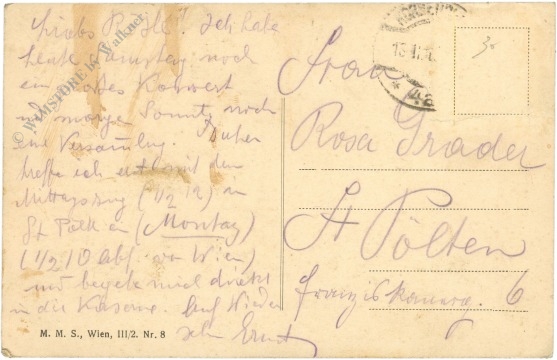 Liebs Rosl! Ich habe
heute Samstag noch
ein großes Konzert
und morgen Sonntg noch
eine Versamlng. Daher
treffe ich erst mit dem
Mittagszug (1/2 12) in
St Pölten (Montag)
(1/2 10 Abf. von Wien)
und begebe mich direkt
in die Kaserne. Auf Wieder
sehn Ernst
© WAMSTÖRE by Walkner
M. M. S., Wien, III/2. Nr. 8
30
Frau
Rosa Grader
St Pölten
Franziskanerg. 6